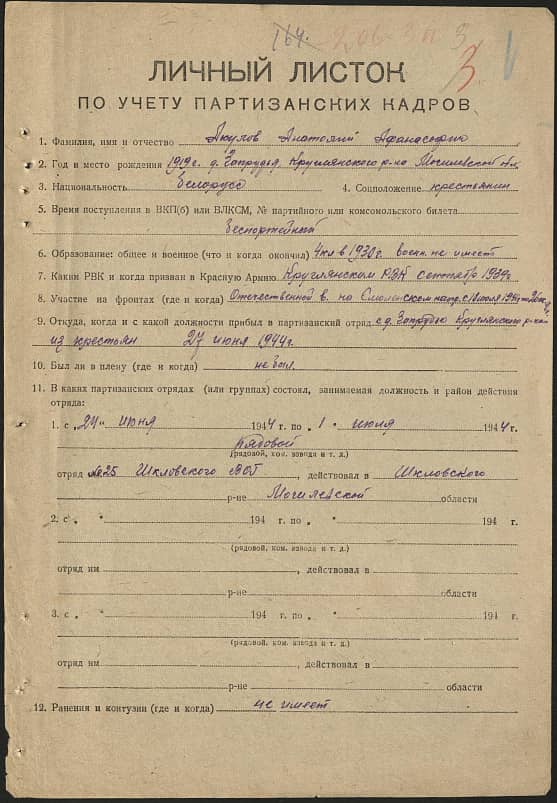 164.
3
ЛИЧНЫЙ ЛИСТОК
ПО УЧЕТУ ПАРТИЗАНСКИХ КАДРОВ
1. Фамилия, имя и отчество Акулов Анатолий Афанасьевич
2. Год и место рождения 1919 г. д. Запрудье, Круглянского р-на Могилевской обл.
3. Национальность Белорус 4. Соцположение крестьянин
5. Время поступления в ВКП(б) или ВЛКСМ, № партийного или комсомольского билета
беспартейный
6. Образование: общее и военное (что и когда окончил) 4 кл в 1930 г. военн. не имеет
7. Каким РВК и когда призван в Красную Армию Круглянским РВК 1939г
8. Участие на фронтах (где и когда) Отечественной в. на Смоленском напр. с
9. Откуда, когда и с какой должности прибыл в партизанский отряд с д. Запрудье Круглянского р-на
из крестьян 27 июня 1944 г.
10. Был ли в плену (где и когда) не был
11. В каких партизанских отрядах (или группах) состоял, занимаемая должность и район действия
отряда:
1. с „27" июня 1944 г. по „1 " июля 1944 г.
рядовой
(рядовой, ком. взвода и т. д.)
отряд №25 Шкловского ВОГ, действовал в Шкловского
р-не Могилевской области
2. с „ " 194 г. по „ " 194 г.
(рядовой, ком. взвода и т. д.)
отряд им , действовал в
р-не области
3. с „ " 194 г. по „ " 194 г.
(рядовой, ком. взвода и т. д.)
отряд им , действовал в
р-не области
12. Ранения и контузии (где и когда) не имеет